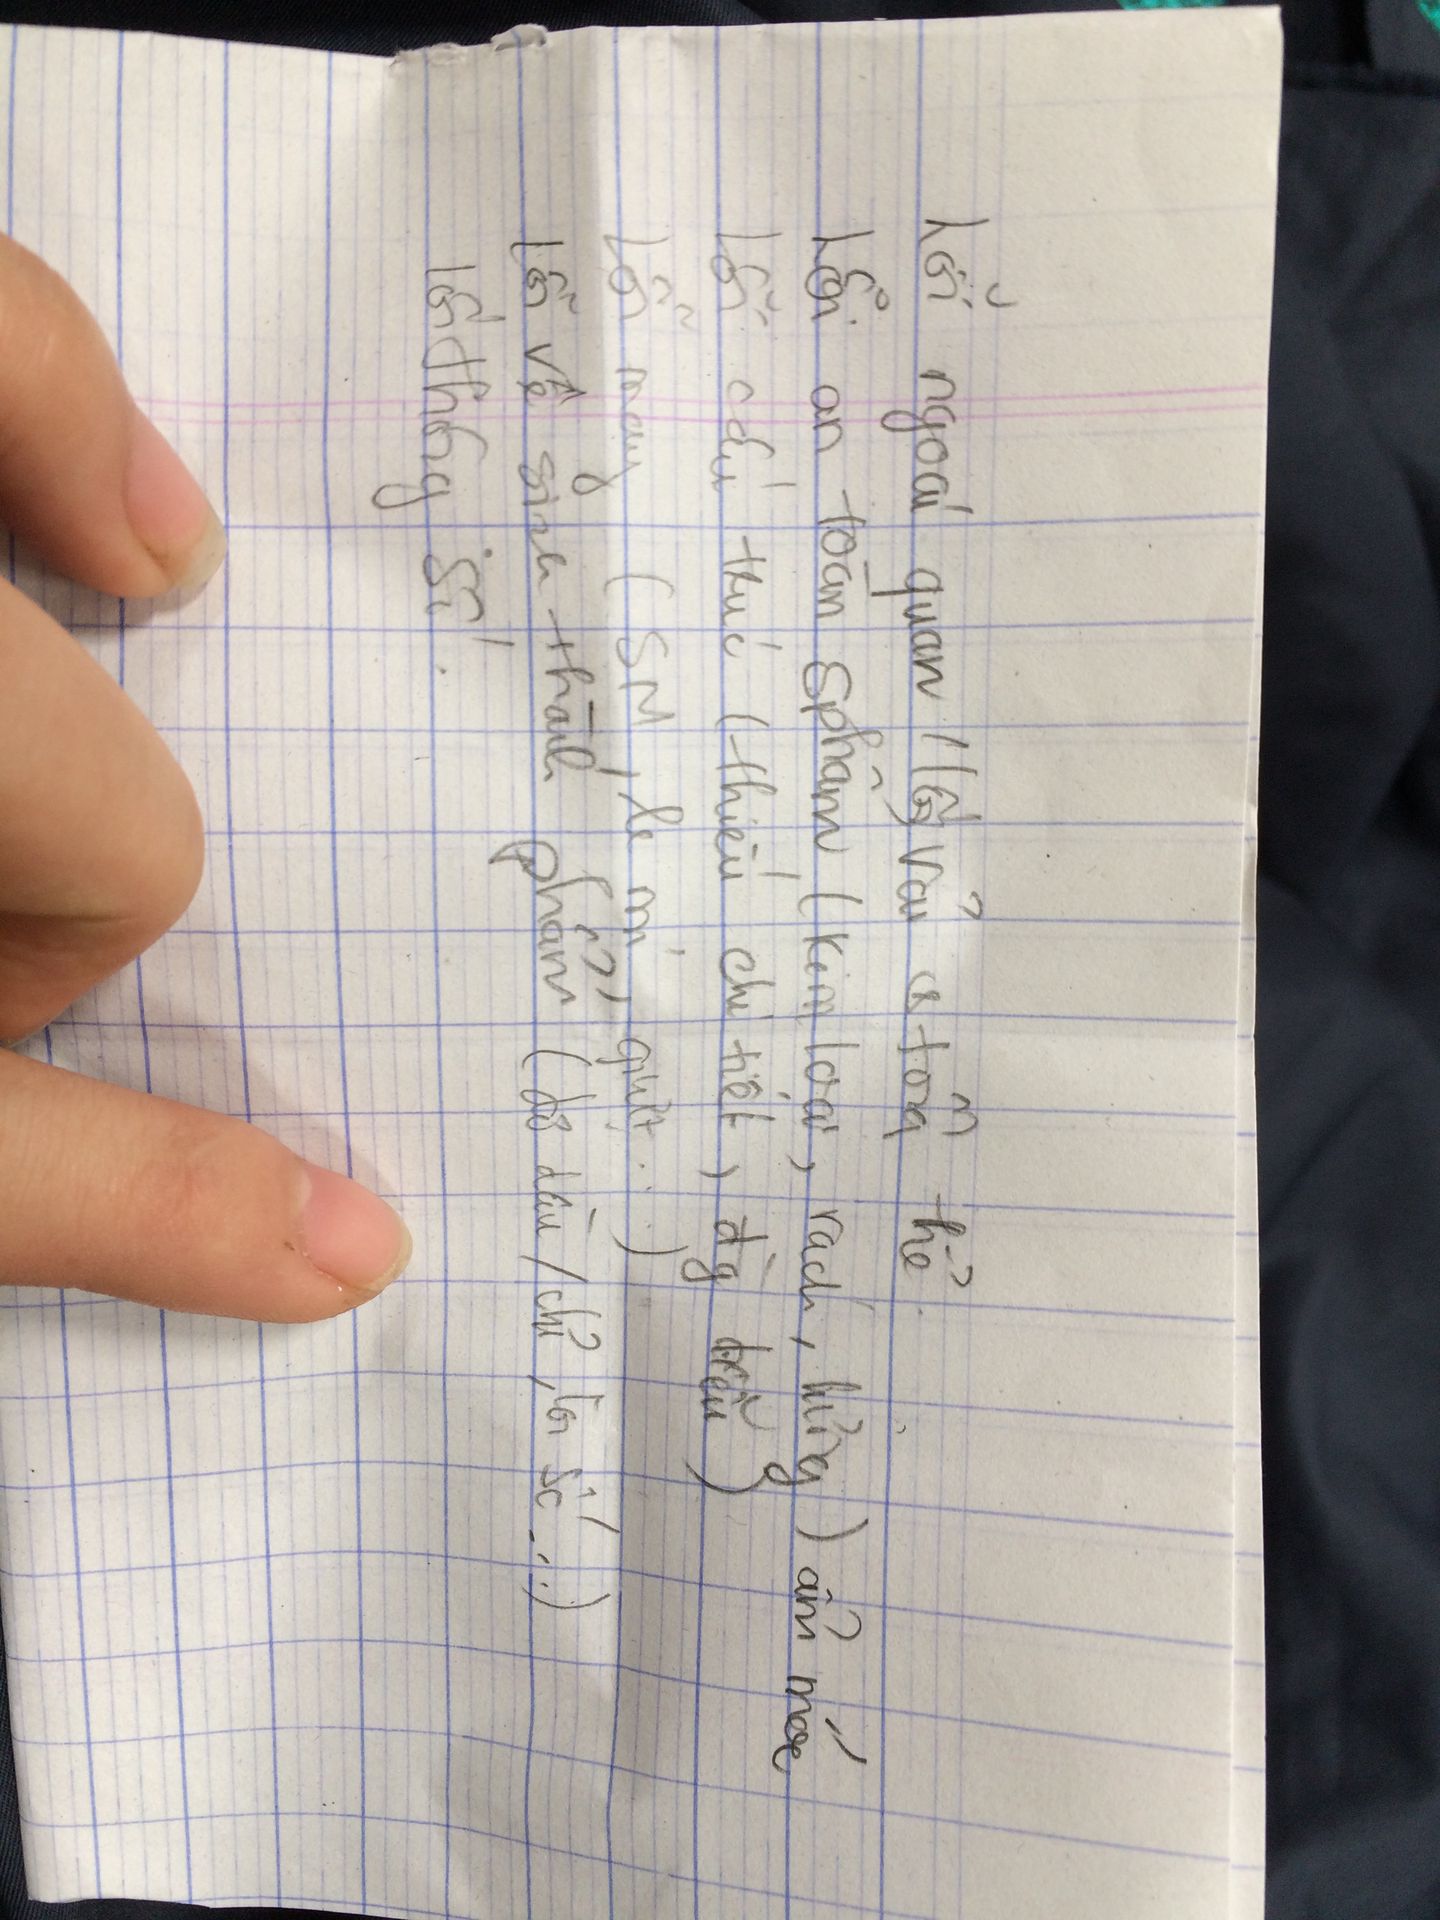 Lỗi ngoại quan / lỗi vải & tổng thể.
Lỗi an toàn Sphẩm (kim loại, rách, hủng) ẩm mốc
Lỗi cấu trúc (thiếu chi tiết, đg trều)
Lỗi may (SM, le mí, ghút...)
Lỗi vệ sinh thành phẩm (dơ dầu/chỉ, lỗi sc...)
Lỗi thông số.